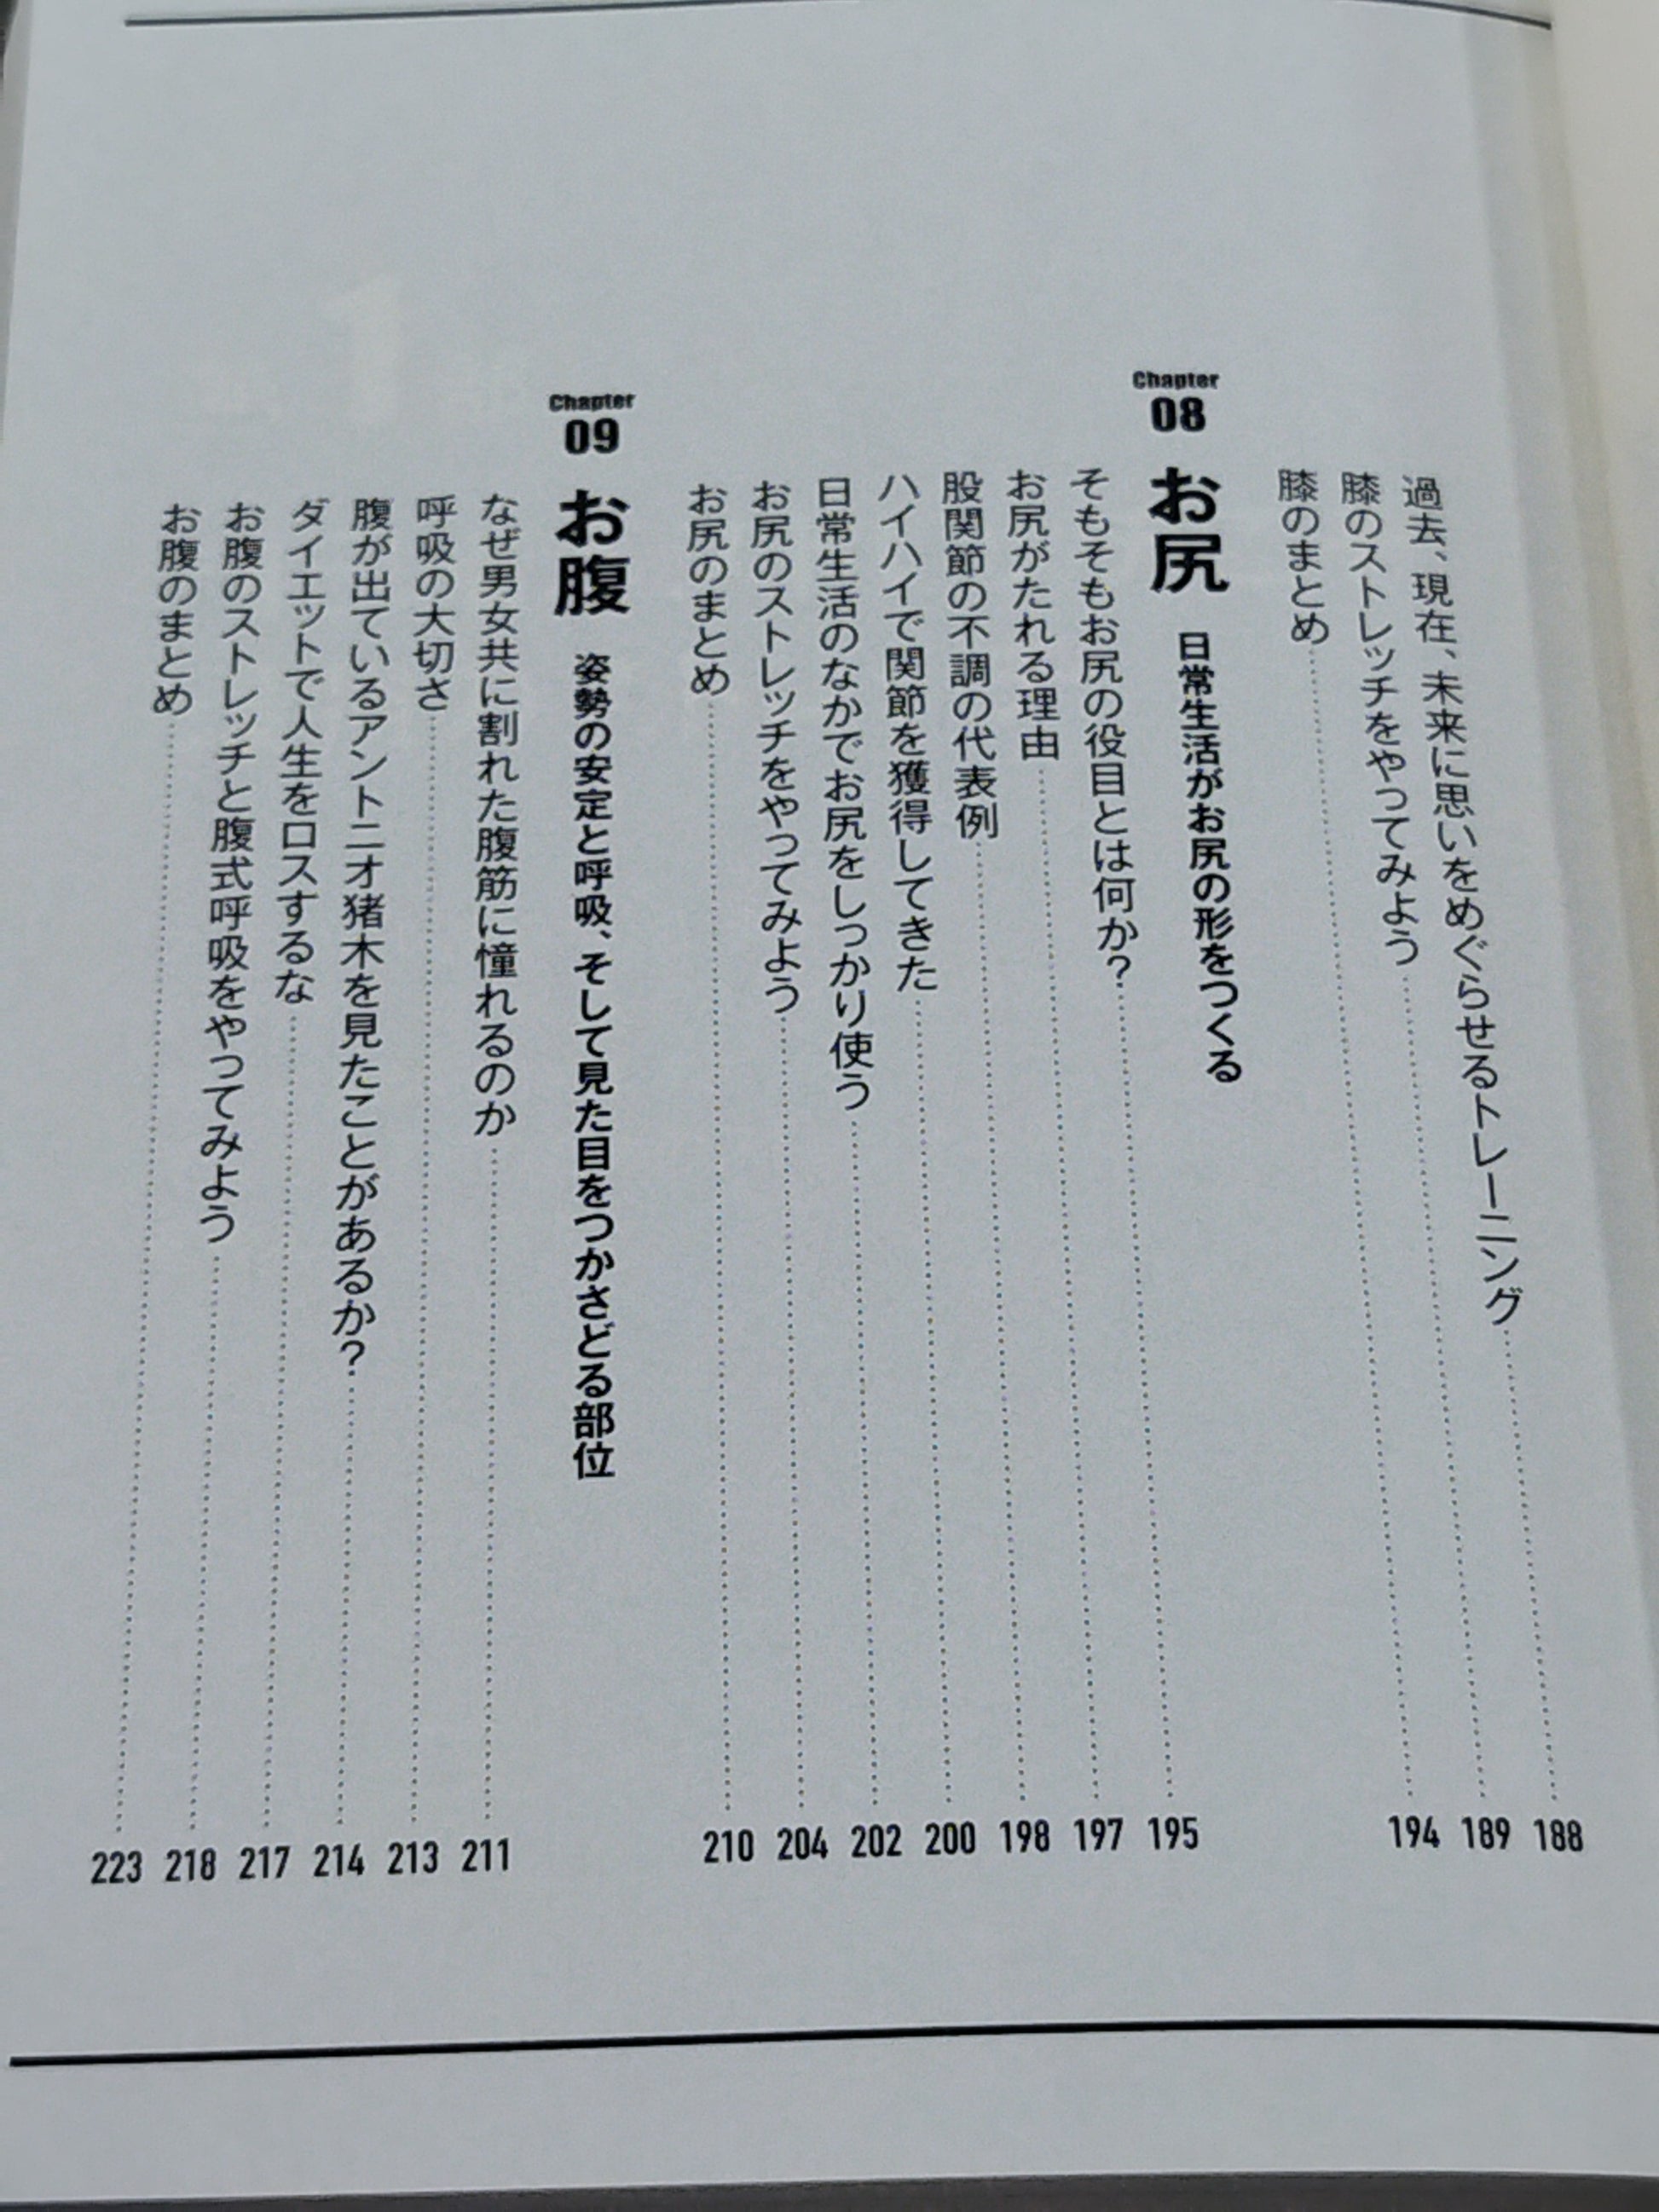 過去、現在、未来に思いをめぐらせるトレーニング 188
膝のストレッチをやってみよう 189
膝のまとめ 194
Chapter
08
お尻 日常生活がお尻の形をつくる
そもそもお尻の役目とは何か? 195
お尻がたれる理由 197
股関節の不調の代表例 198
ハイハイで関節を獲得してきた 200
日常生活のなかでお尻をしっかり使う 202
お尻のストレッチをやってみよう 204
お尻のまとめ 210
Chapter
09
お腹 姿勢の安定と呼吸、そして見た目をつかさどる部位
なぜ男女共に割れた腹筋に憧れるのか 211
呼吸の大切さ 213
腹が出ているアントニオ猪木を見たことがあるか? 214
ダイエットで人生をロスするな 217
お腹のストレッチと腹式呼吸をやってみよう 218
お腹のまとめ 223